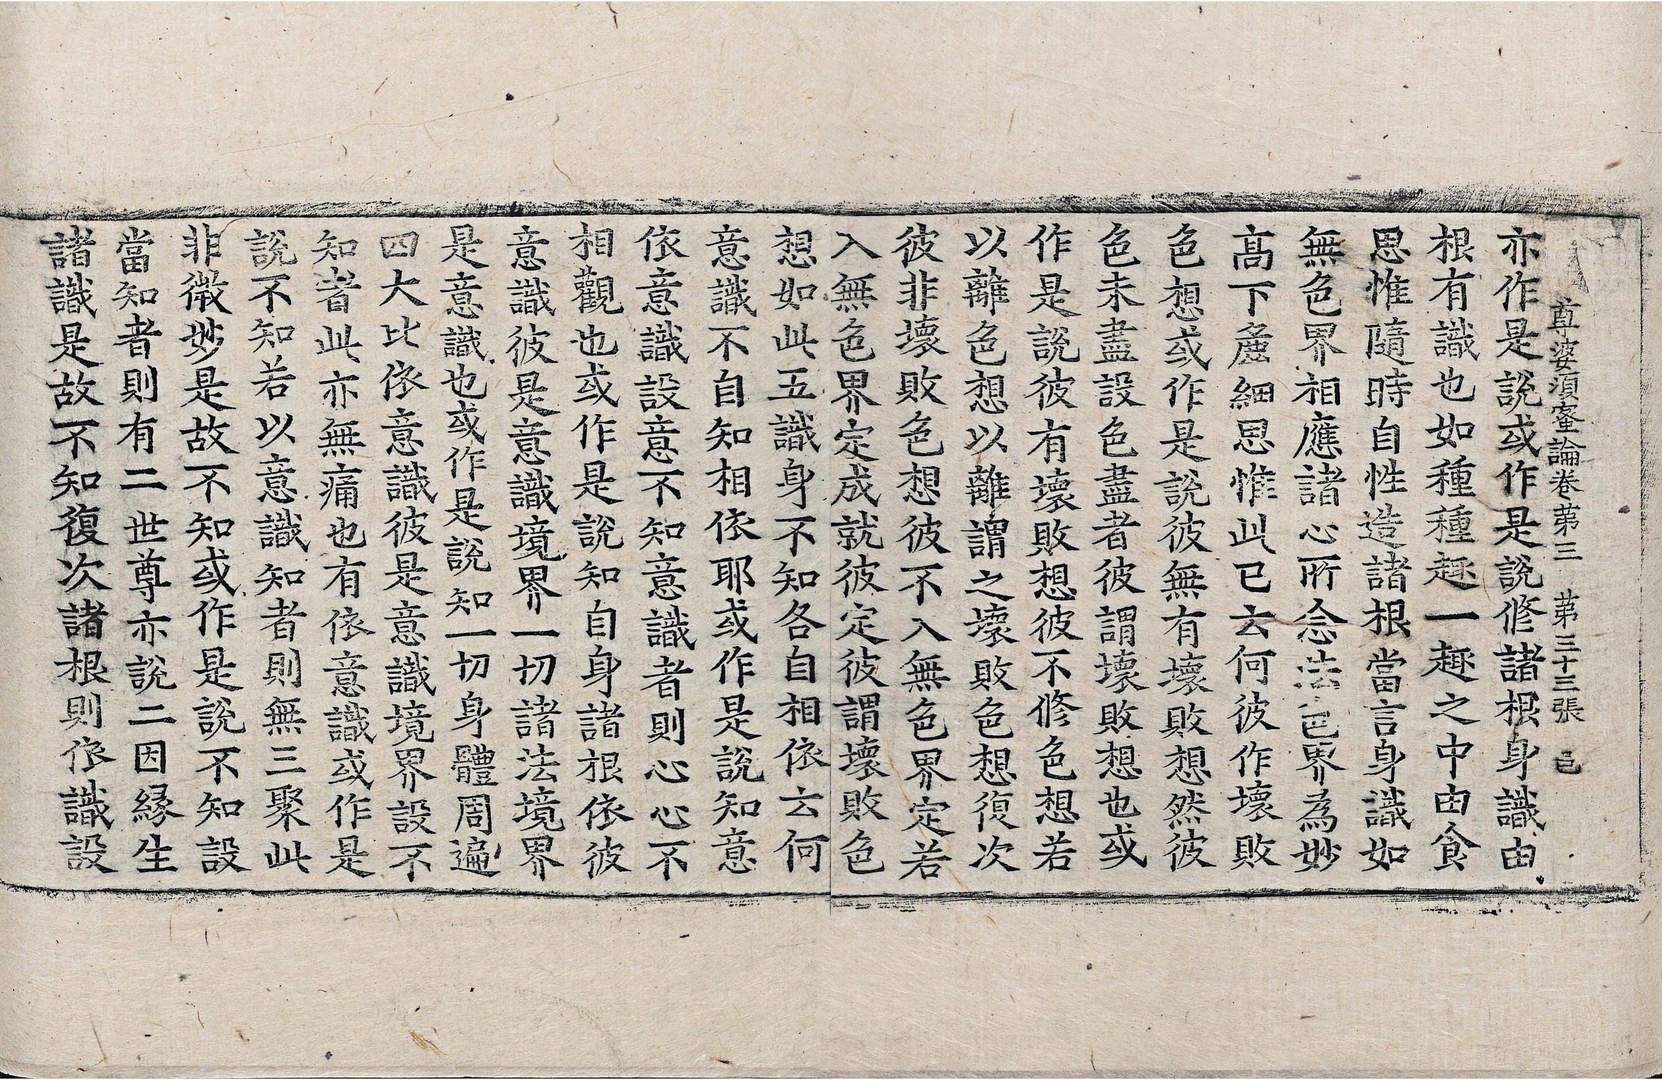 尊婆須蜜論卷第三　第三十三張　邑
亦作是說或作是說修諸根身識由
根有識也如種種趣一趣之中由食
思惟隨時自性造諸根當言身識如
無色界相應諸心所念法色界為妙
高下麁細思惟此已云何彼作壞敗
色想或作是說彼無有壞敗想然彼
色未盡設色盡者彼謂壞敗想也或
作是說彼有壞敗想彼不修色想若
以離色想以離謂之壞敗色想復次
彼非壞敗色想彼不入無色界定若
入無色界定成就彼定彼謂壞敗色
想如此五識身不知各自相依云何
意識不自知相依耶或作是說知意
依意識設意不知意識者則心心不
相觀也或作是說知自身諸根依彼
意識彼是意識境界一切諸法境界
是意識也或作是說知一切身體周遍
四大比依意識彼是意識境界設不
知者此亦無痛也有依意識或作是
說不知若以意識知者則無三聚此
非微妙是故不知或作是說不知設
當知者則有二世尊亦說二因緣生
諸識是故不知復次諸根則依識設